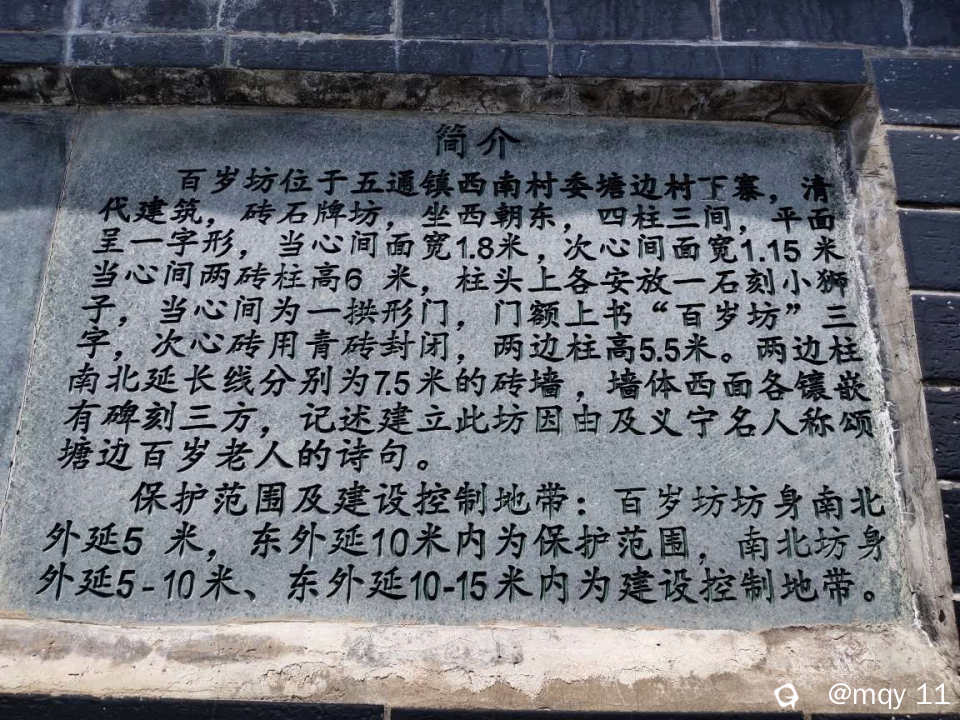 简介
百岁坊位于五通镇西南村委塘边村下寨，清
代建筑，砖石牌坊，坐西朝东，四柱三间，平面
呈一字形，当心间面宽1.8米，次心间面宽1.15米
当心间两砖柱高6 米，柱头上各安放一石刻小狮
子，当心间为一拱形门，门额上书“百岁坊”三
字，次心砖用青砖封闭，两边柱高5.5米。两边柱
南北延长线分别为7.5米的砖墙，墙体西面各镶嵌
有碑刻三方，记述建立此坊因由及义宁名人称颂
塘边百岁老人的诗句。
保护范围及建设控制地带：百岁坊坊身南北
外延5 米，东外延10米内为保护范围，南北坊身
外延5-10米、东外延10-15米内为建设控制地带。
@mqy 11